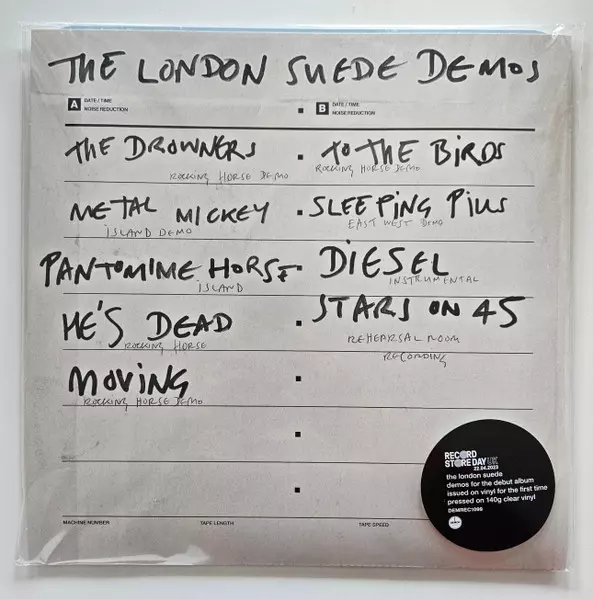 THE LONDON SUEDE DEMOS
A DATE / TIME
NOISE REDUCTION
B DATE / TIME
NOISE REDUCTION
THE DROWNERS
ROCKING HORSE DEMO
METAL MICKEY
ISLAND DEMO
PANTOMIME HORSE
ISLAND
HE'S DEAD
ROCKING HORSE
MOVING
ROCKING HORSE DEMO
TO THE BIRDS
ROCKING HORSE DEMO
SLEEPING PILLS
EAST WEST DEMO
DIESEL
INSTRUMENTAL
STARS ON 45
REHEARSAL ROOM
RECORDING
MACHINE NUMBER
TAPE LENGTH
TAPE SPEED
RECORD
STORE DAY UK
22.04.2023
the london suede
demos for the debut album
issued on vinyl for the first time
pressed on 140g clear vinyl
DEMREC1098